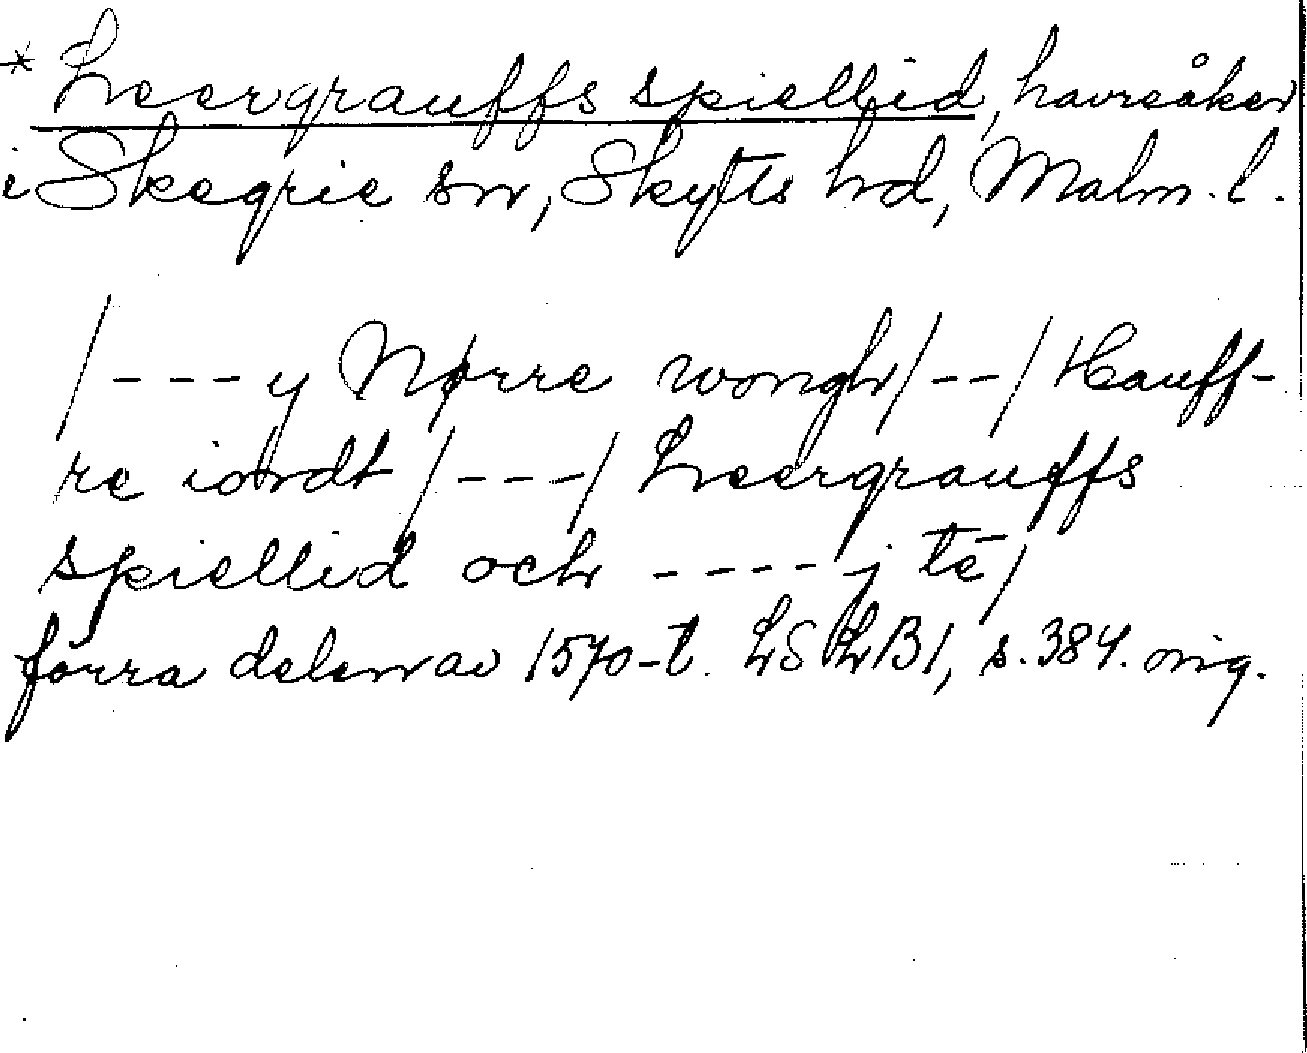 * Leergrauffs spiellid, havreåker
i Skegrie sn, Skytts hd, Malm. l.
/---y Nørre wongh/--/ Hauff-
re iordt /---/ Leergrauffs
spiellid och ----j te/
förra delen av 1570-t. LSLB1, s. 384. orig.